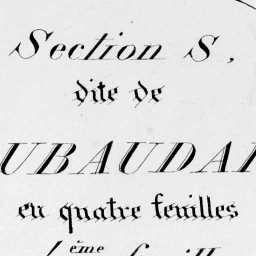 Section S,
dite de
UBAUDA
en quatre feuilles
ème feuill